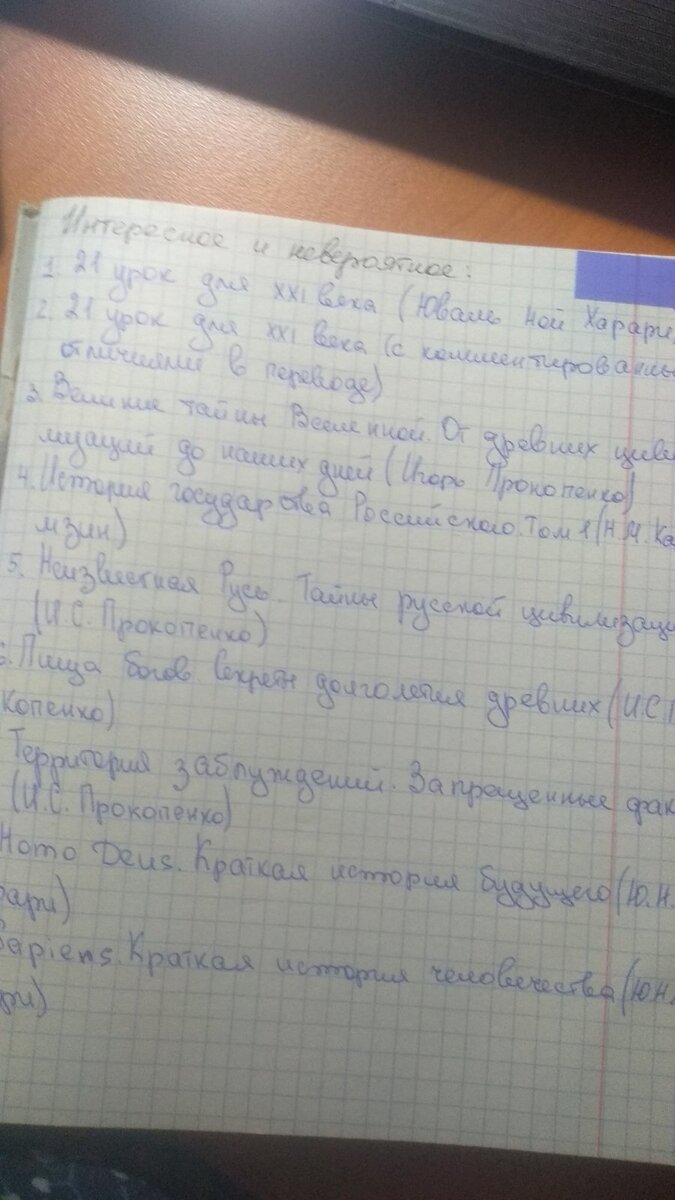 Интересное и невероятное:
1. 21 урок для XXI века (Юваль Ной Харари,
2. 21 урок для XXI века (с комментированны
отличиями в переводе)
3. Великие тайны Вселенной. От древних циви
лизаций до наших дней (Игорь Прокопенко)
4. История государства Российского. Том 1 (Н.М. Ка
мзин)
5. Неизвестная Русь. Тайны русской цивилизаци
(И.С. Прокопенко)
6. Пища богов. Секреты долголетия древних (И.С
Копенко)
Территория заблуждений. Запрещенные фак
(И.С. Прокопенко)
Homo Deus. Краткая история будущего (Ю.Н.
рари)
Sapiens. Краткая история человечества (Ю.Н.
ри)